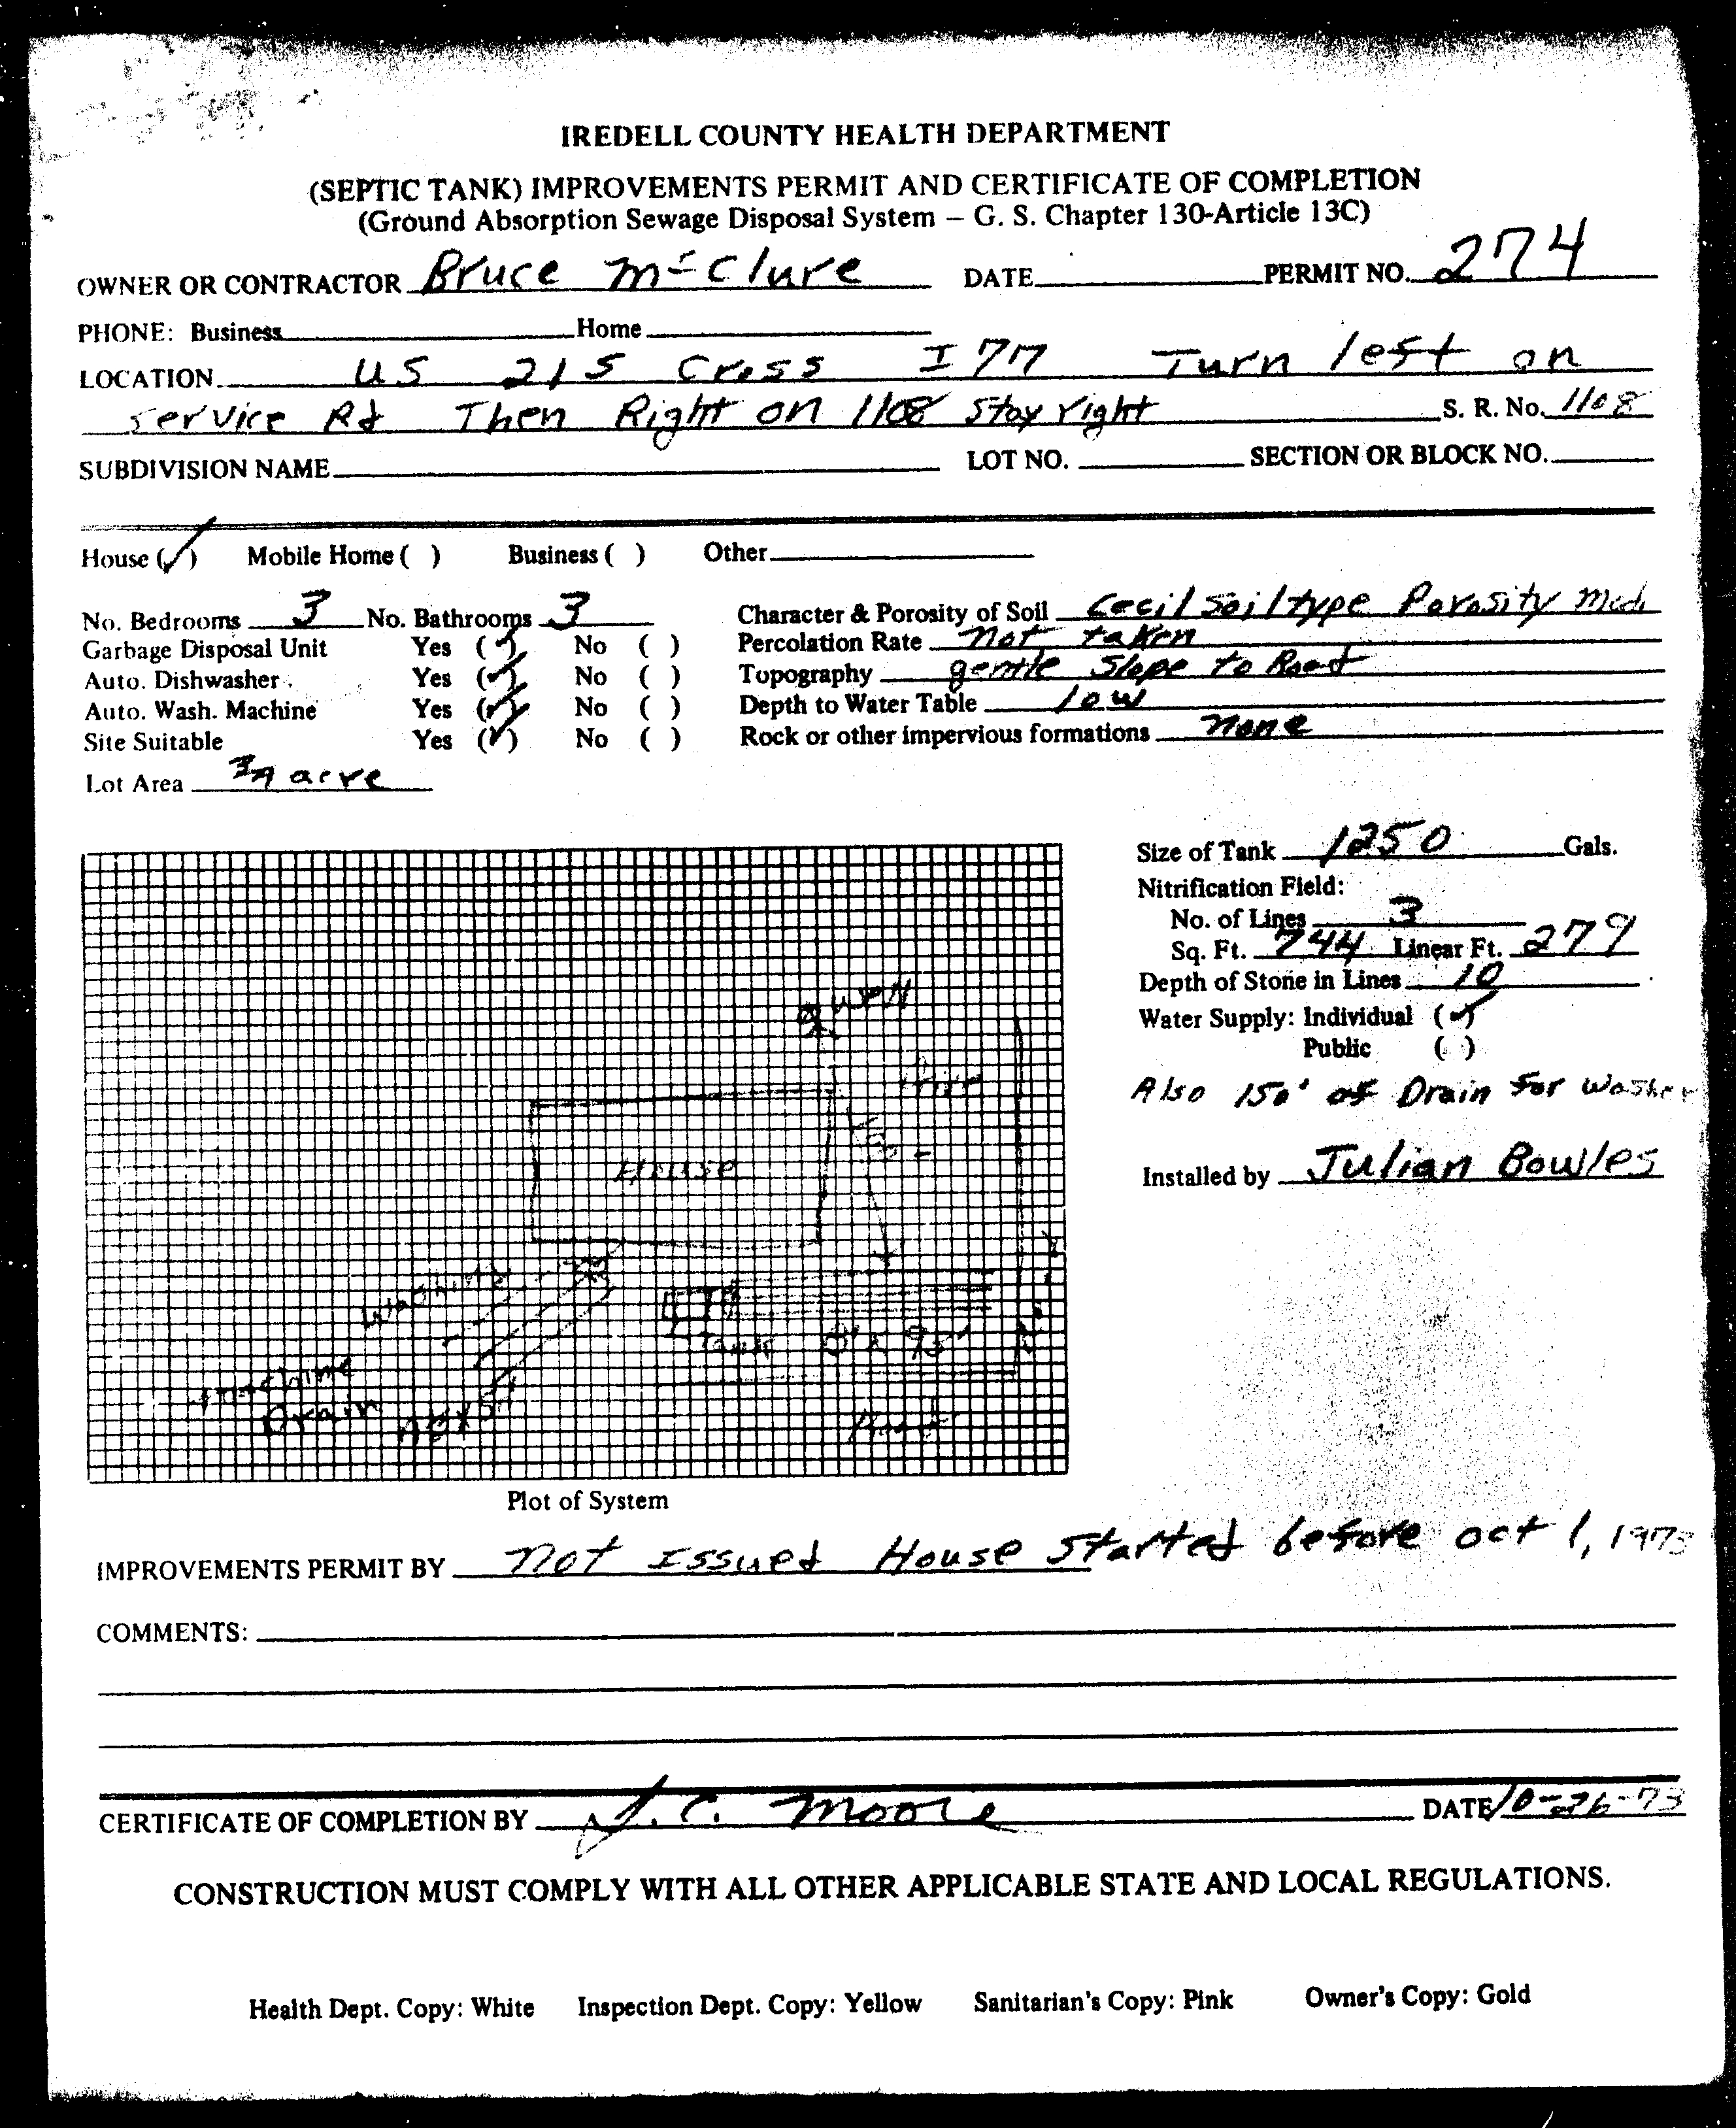 IREDELL COUNTY HEALTH DEPARTMENT
(SEPTIC TANK) IMPROVEMENTS PERMIT AND CERTIFICATE OF COMPLETION
(Ground Absorption Sewage Disposal System – G. S. Chapter 130-Article 13C)
OWNER OR CONTRACTOR Bruce McClure DATE PERMIT NO. 274
PHONE: Business Home
LOCATION US 21 S Cross I 77 Turn left on
service Rd Then Right on 1108 Stay right S. R. No. 1108
SUBDIVISION NAME LOT NO. SECTION OR BLOCK NO.
House (✓) Mobile Home ( ) Business ( ) Other
No. Bedrooms 3 No. Bathrooms 3 Character & Porosity of Soil Cecil soil type Porosity Mod
Garbage Disposal Unit Yes (✓) No ( ) Percolation Rate not taken
Auto. Dishwasher Yes (✓) No ( ) Topography gentle slope to Road
Auto. Wash. Machine Yes (✓) No ( ) Depth to Water Table low
Site Suitable Yes (✓) No ( ) Rock or other impervious formations none
Lot Area 3/4 acre
Size of Tank 1250 Gals.
Nitrification Field:
No. of Lines 3
Sq. Ft. 744 Linear Ft. 279
Depth of Stone in Lines 10
Water Supply: Individual (✓)
Public ( )
Also 150' of Drain for Washer
Installed by Julian Bowles
Well
Drive
House
Washing
Machine
Drain
Tank
Road
Plot of System
IMPROVEMENTS PERMIT BY not Issued House Started before oct 1, 1973
COMMENTS:
CERTIFICATE OF COMPLETION BY J. C. Moore DATE 10-26-73
CONSTRUCTION MUST COMPLY WITH ALL OTHER APPLICABLE STATE AND LOCAL REGULATIONS.
Health Dept. Copy: White Inspection Dept. Copy: Yellow Sanitarian's Copy: Pink Owner's Copy: Gold